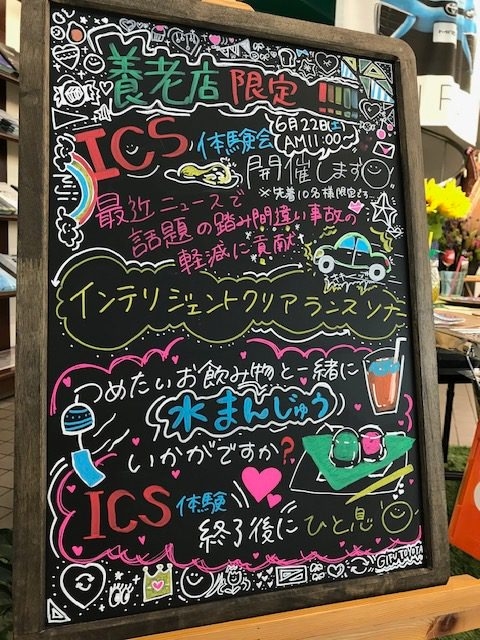 養老店限定
ICS 体験会
6月22日(土)
AM11:00~
開催します
※先着10名様限定です
最近ニュースで
話題の踏み間違い事故の
軽減に貢献
インテリジェントクリアランスソナー
つめたいお飲み物と一緒に
水まんじゅう
いかがですか?
ICS 体験
終了後にひと息
GIFU TOYOTA